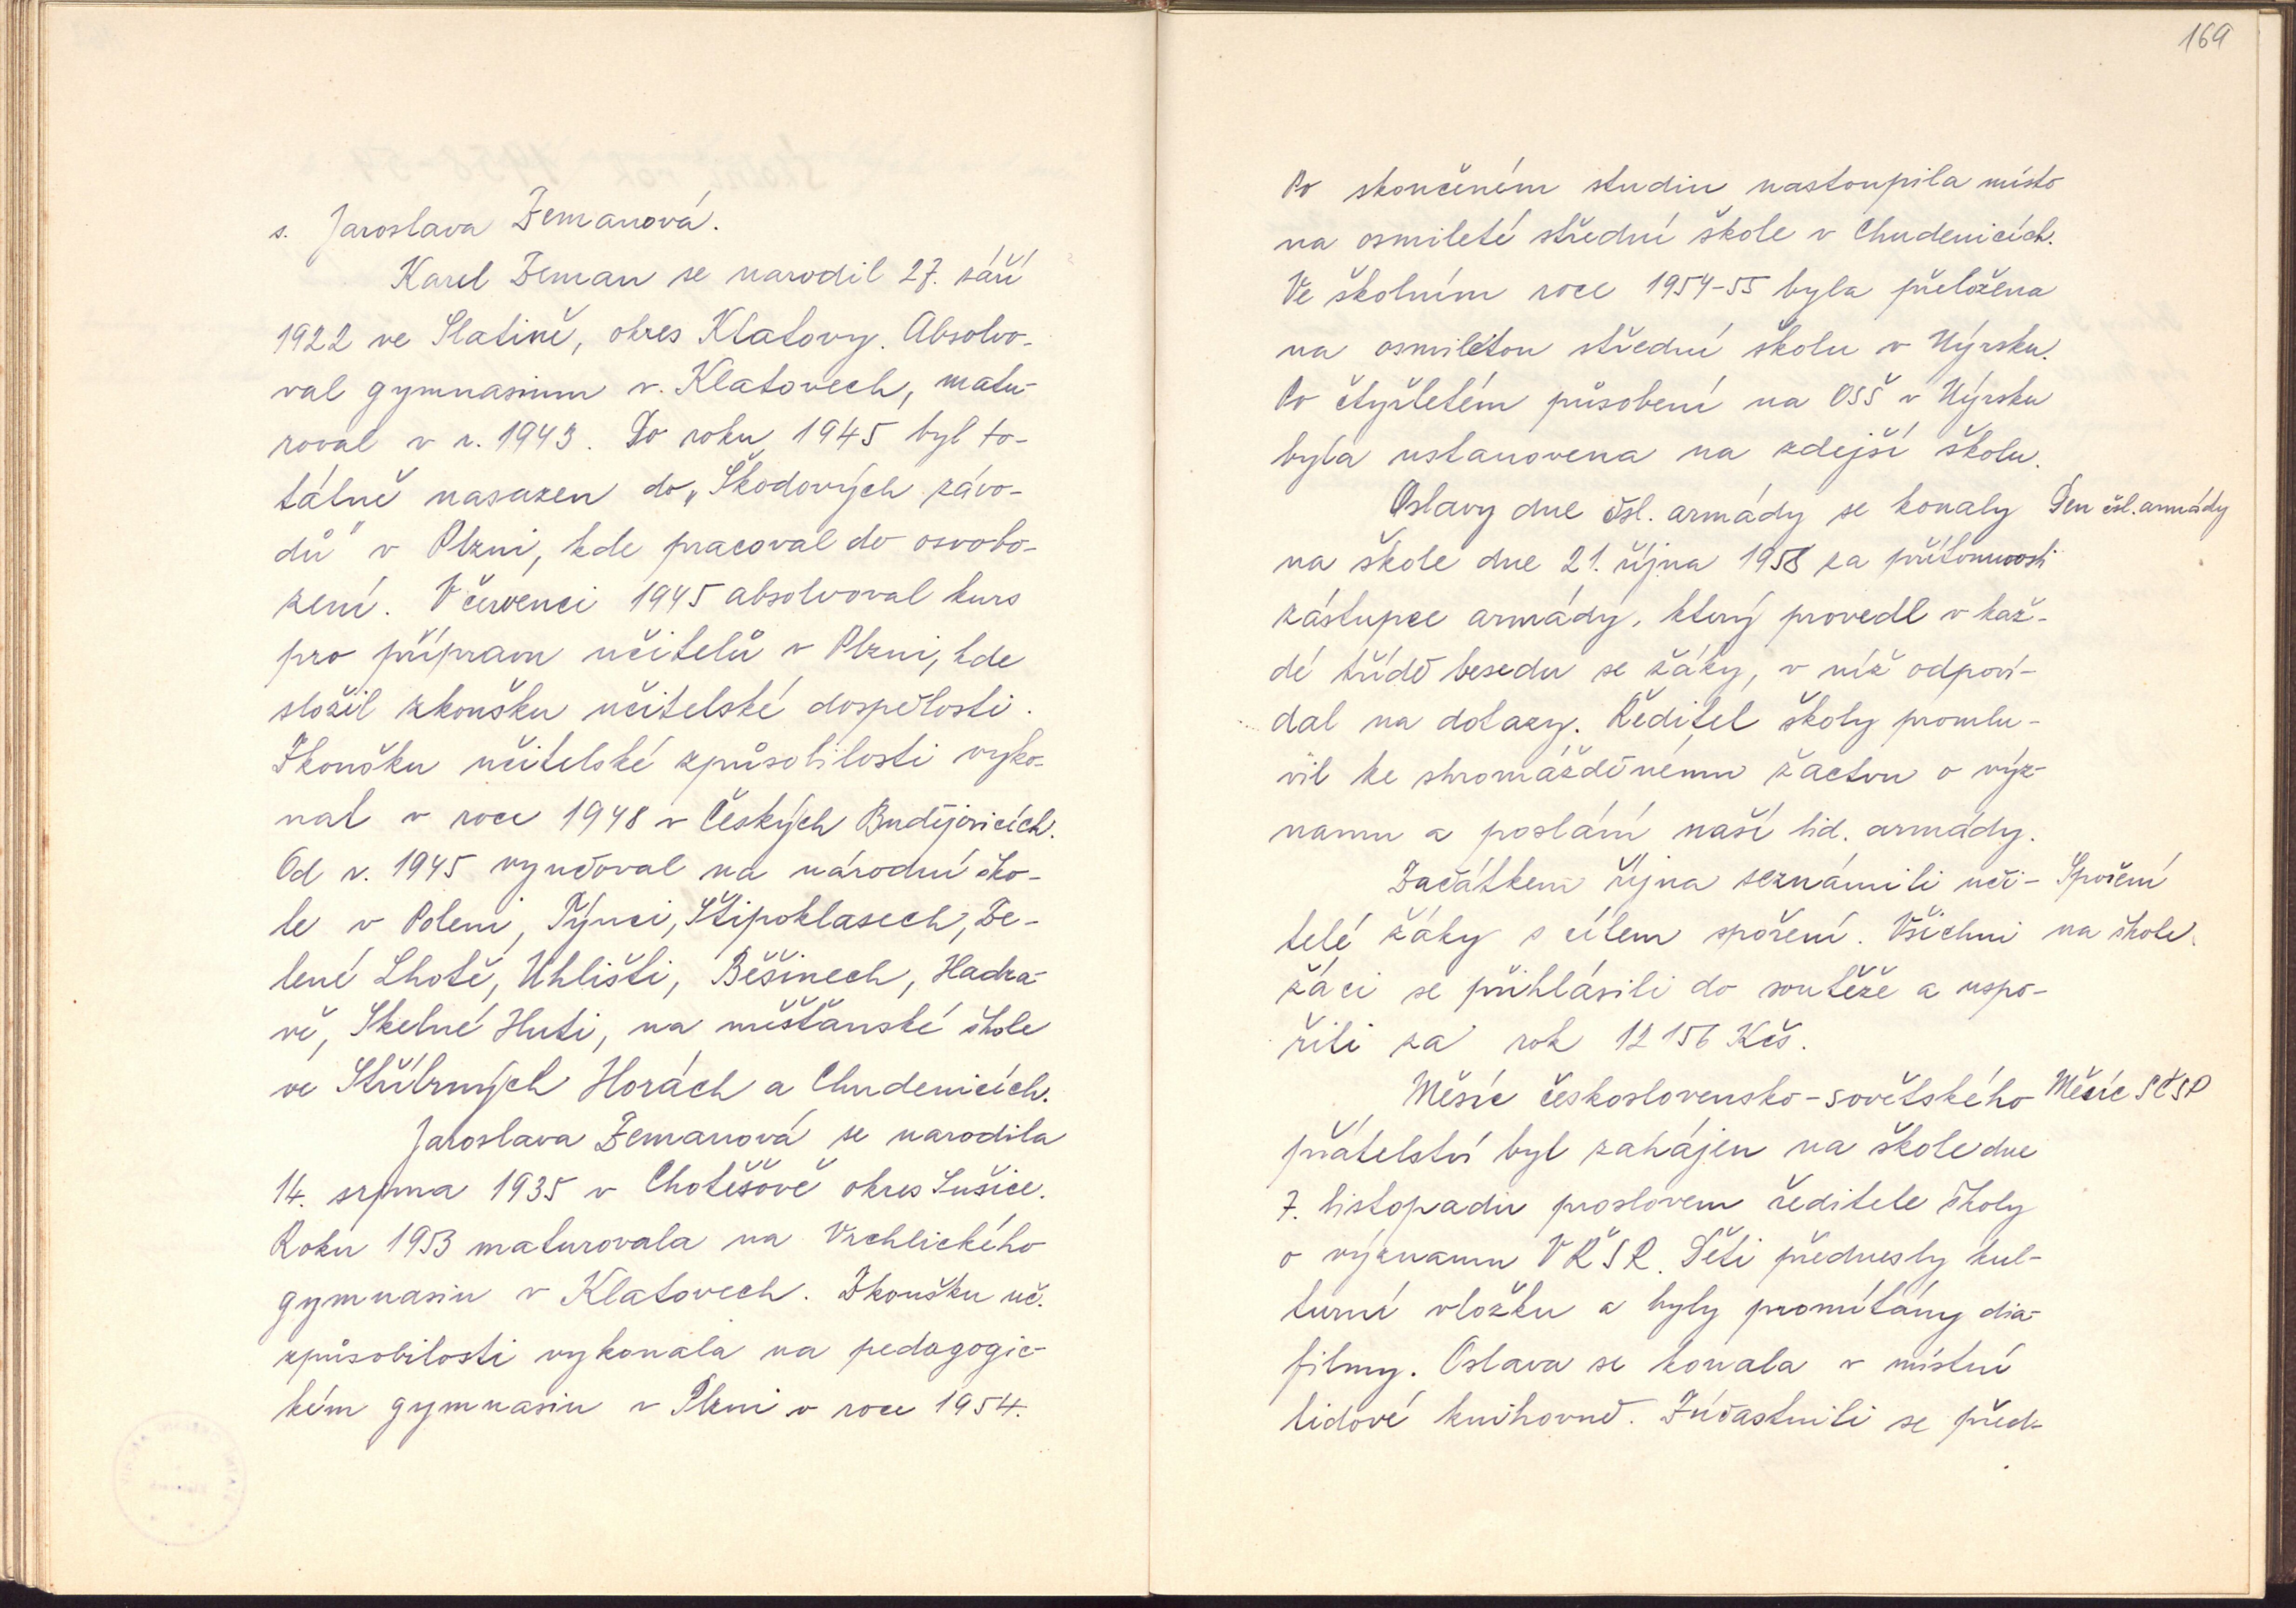 s. Jaroslava Zemanová.
Karel Zeman se narodil 27. září
1922 ve Slatině, okres Klatovy. Absolvo-
val gymnasium v. Klatovech, matu-
roval v r. 1943. Do roku 1945 byl to-
tálně nasazen do „Škodových závo-
dů" v Plzni, kde pracoval do osvobo-
zení. V červenci 1945 absolvoval kurs
pro přípravu učitelů v Plzni, kde
složil zkoušku učitelské dospělosti.
Zkoušku učitelské způsobilosti vyko-
nal v roce 1948 v Českých Budějovicích.
Od r. 1945 vyučoval na národní ško-
le v Poleni, Týnci, Štipoklasech, Ze-
lené Lhotě, Uhlišti, Běšinech, Hadra-
vě, Skelné Huti, na měšťanské škole
ve Stříbrných Horách a Chudenicích.
Jaroslava Zemanová se narodila
14. srpna 1935 v Chotěšově okres Sušice.
Roku 1953 maturovala na Vrchlického
gymnasiu v Klatovech. Zkoušku uč.
způsobilosti vykonala na pedagogic-
kém gymnasiu v Plzni v roce 1954.
169
Po skončeném studiu nastoupila místo
na osmileté střední škole v Chudenicích.
Ve školním roce 1954-55 byla přeložena
na osmiletou střední školu v Nýrsku.
Po čtyřletém působení na OSŠ v Nýrsku
byla ustanovena na zdejší školu.
Oslavy dne čsl. armády se konaly
Den čsl. armády
na škole dne 21. října 1958 za přítomnosti
zástupce armády, který provedl v kaž-
dé třídě besedu se žáky, v níž odpoví-
dal na dotazy. Ředitel školy promlu-
vil ke shromážděnému žactvu o výz-
namu a poslání naší lid. armády.
Začátkem října seznámili uči-
Spoření
telé žáky s cílem spoření. Všichni
na škole.
žáci se přihlásili do soutěže a uspo-
řili za rok 12 156 Kčs.
Měsíc československo-sovětského
Měsíc SČSP
přátelství byl zahájen na škole dne
7. listopadu proslovem ředitele školy
o významu VŘSR. Děti přednesly kul-
turní vložku a byly promítány dia-
filmy. Oslava se konala v místní
lidové knihovně. Zúčastnili se před-